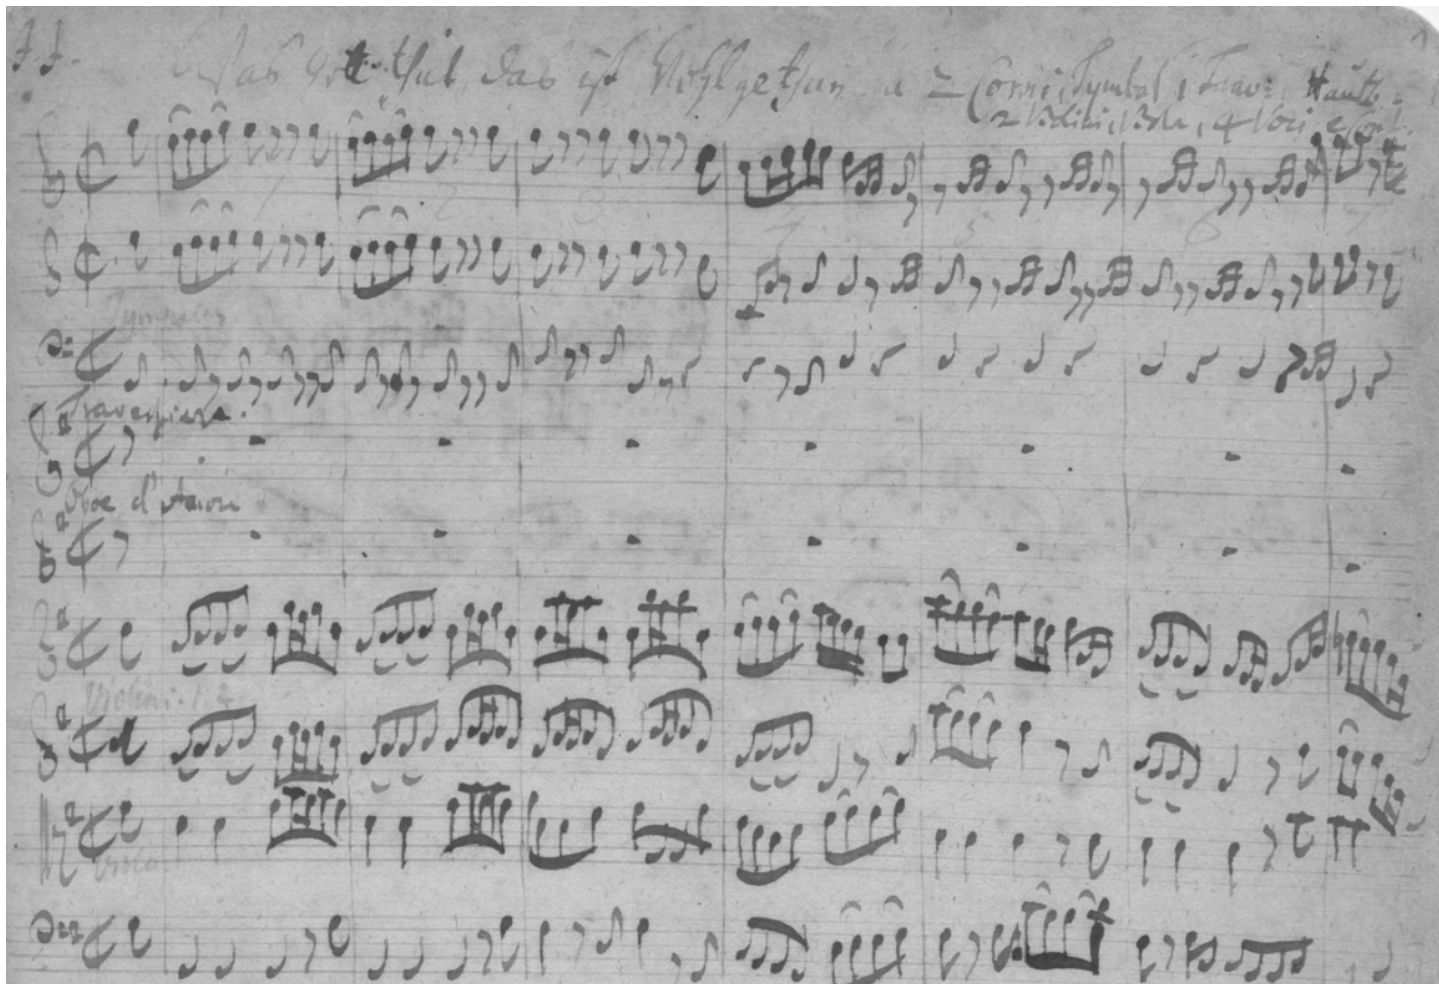 J. J. Was Gott thut, das ist Wohlgethan. a 2 Corni, Tymbal, 1 Trav: Hautb:
2 Violini, Viola, 4 Voci e Cont.
Tympales
Traversiere.
Oboe d'Amour
Violini. 1. 2
Viola.